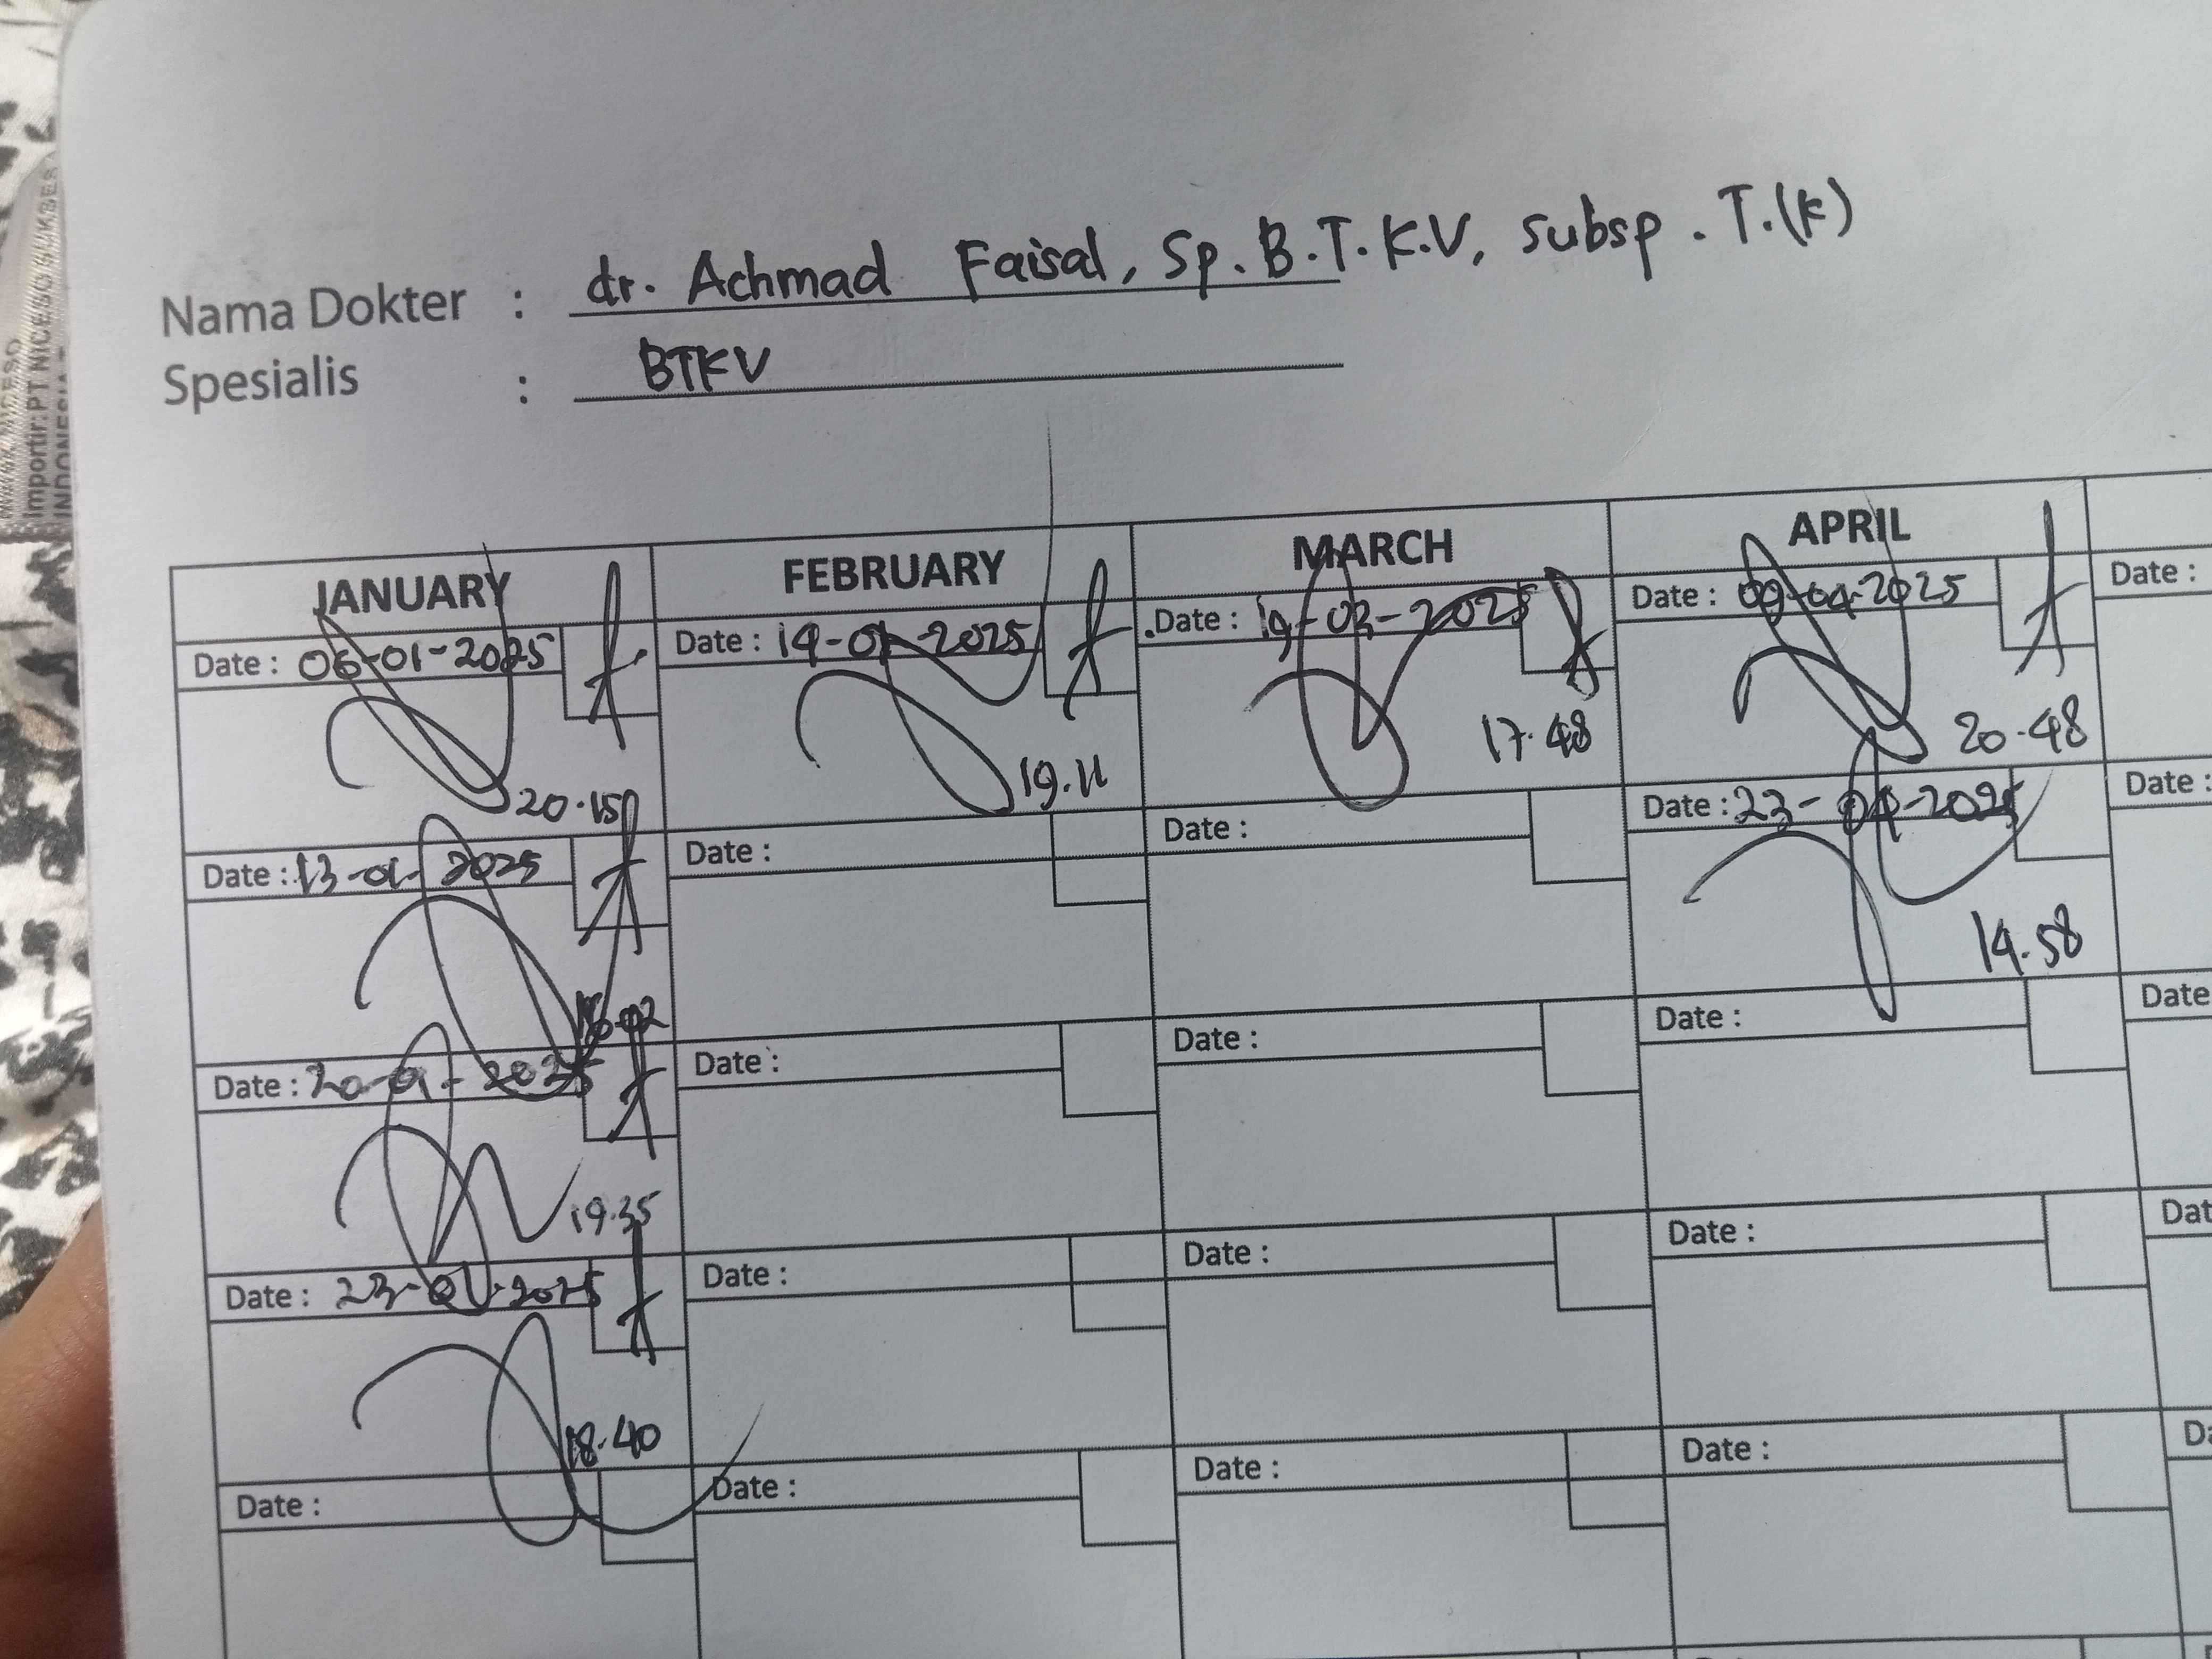 Importir: PT NICESO SUKSES
INDONESIA
Nama Dokter : dr. Achmad Faisal, Sp. B.T.K.V, subsp. T.(K)
Spesialis : BTKV
JANUARY FEBRUARY MARCH APRIL
Date : 06-01-2025 Date : 14-01-2025 Date : 19-03-2025 Date : 09-04-2025 Date :
20.15 19.11 17.48 20.48
Date : 13-01-2025 Date : Date : Date : 23-04-2025 Date :
14.58
Date : 20-01-2025 Date : Date : Date : Date
19.35
Date : 23-01-2025 Date : Date : Date : Dat
18.40
Date : Date : Date : Date : Da